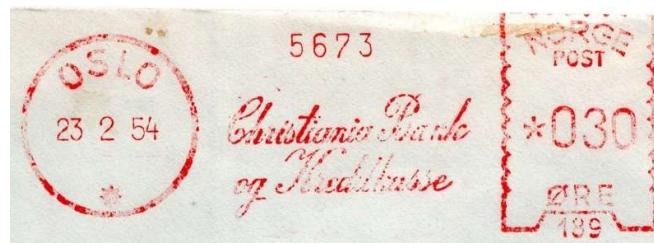 OSLO
23 2 54
*
5673
Christiania Bank
og Kreditkasse
NORGE
POST
*030
ØRE
189